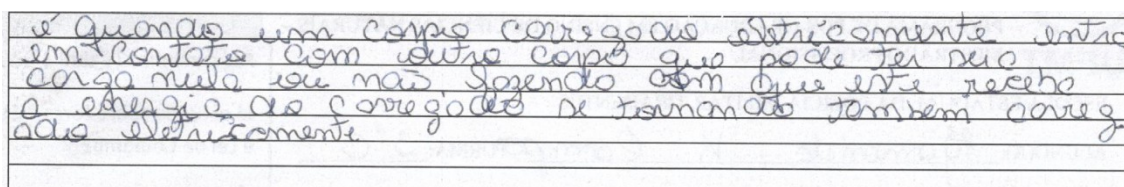 é quando um corpo carregado eletricamente entra
em contato com outro corpo que pode ter sua
carga nula ou não, fazendo com que este receba
a energia do carregado se tornando tambem carreg
ado eletricamente.